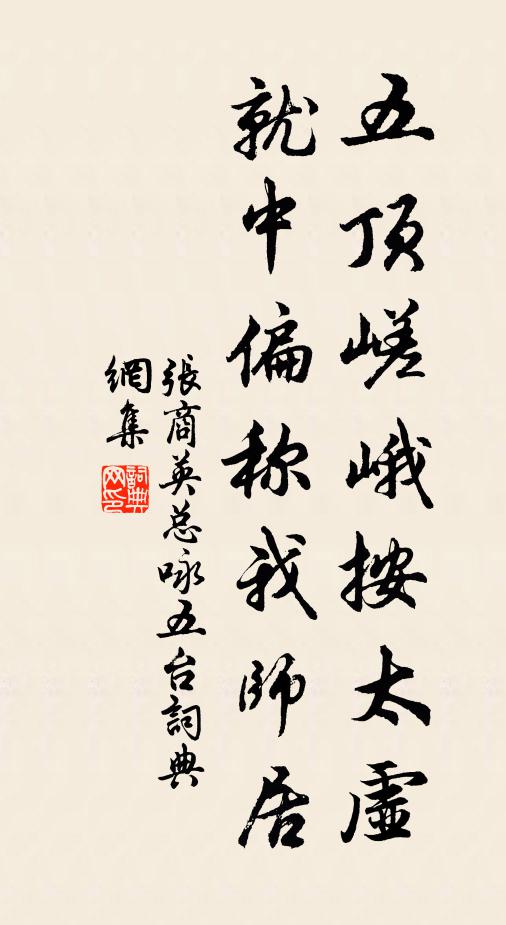 五顶嵯峨按太虚
就中偏称我師居
張商英总咏五台詞典
網集
詞典网印